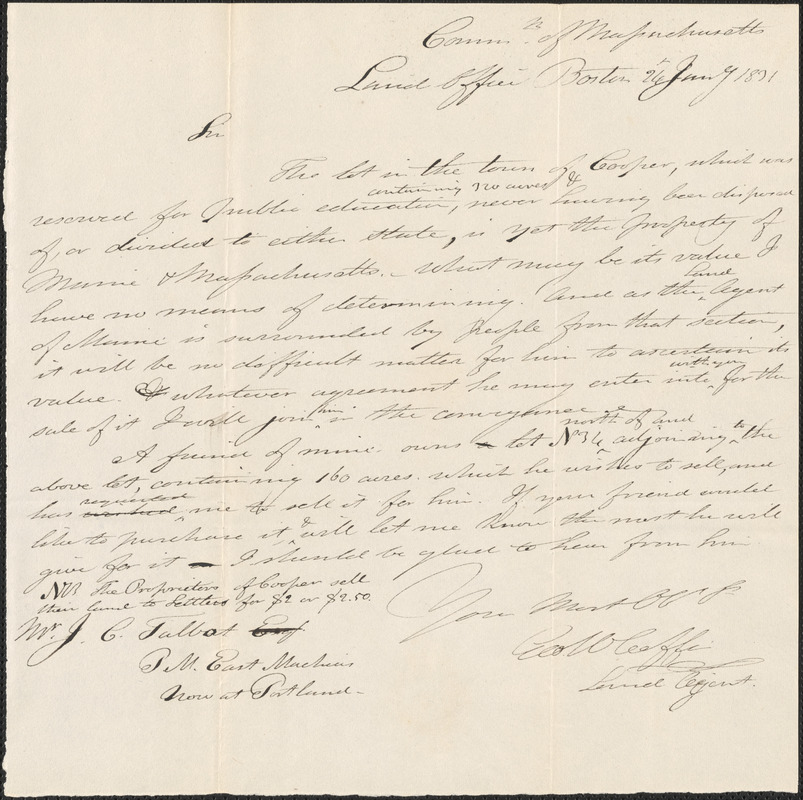 Commth. of Massachusetts
Land Office Boston 26th Jany 1831
Sir
The lot in the town of Cooper, which was
containing 320 acres &
reserved for public education, never having been disposed
of, or divided to either state, is yet the property of
Maine & Massachusetts. - What may be its value I
have no means of determining. And as the Land Agent
of Maine is surrounded by people from that section,
it will be no difficult matter for him to ascertain its
value. & whatever agreement he may enter into with you for the
sale of it I will join him in the conveyance.
A friend of mine owns lot No 34 north of and adjoining to the
above lot, containing 160 acres. which he wishes to sell, and
has requested me to sell it for him. If your friend would
like to purchase it & will let me know the most he will
give for it I should be glad to hear from him.
NB The Proprietors of Cooper sell
their land to Settlers for $2 or $2.50.
Your Most
Mr. J. C. Talbot Esq
Geo W Coffin
P.M. East Machias
Land Agent.
Now at Portland -